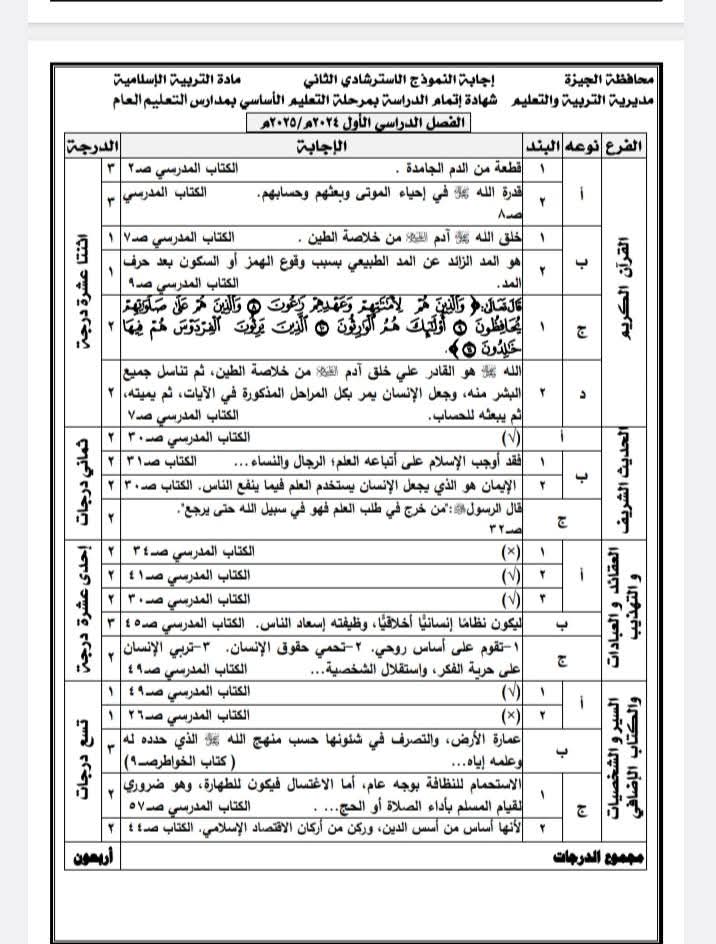 محافظة الجيزة إجابة النموذج الاسترشادي الثاني مادة التربية الإسلامية
مديرية التربية والتعليم شهادة إتمام الدراسة بمرحلة التعليم الأساسي بمدارس التعليم العام
الفصل الدراسي الأول ٢٠٢٤م/٢٠٢٥م
الفرع نوعه البند الإجابة الدرجة
القرآن الكريم أ ١ قطعة من الدم الجامدة . الكتاب المدرسي صـ٢ ٣ اثنتا عشرة درجة
٢ قدرة الله ﷻ في إحياء الموتى وبعثهم وحسابهم. الكتاب المدرسي ٣
صـ٨
ب ١ خلق الله ﷻ آدم من خلاصة الطين . الكتاب المدرسي صـ٧ ١
٢ هو المد الزائد عن المد الطبيعي بسبب وقوع الهمز أو السكون بعد حرف ١
المد. الكتاب المدرسي صـ٩
ج ١ قال تعالى: ﴿ وَالَّذِينَ هُمْ لِأَمَانَاتِهِمْ وَعَهْدِهِمْ رَاعُونَ ٨ وَالَّذِينَ هُمْ عَلَىٰ صَلَوَاتِهِمْ ٢
يُحَافِظُونَ ٩ أُولَٰئِكَ هُمُ الْوَارِثُونَ ١٠ الَّذِينَ يَرِثُونَ الْفِرْدَوْسَ هُمْ فِيهَا
خَالِدُونَ ١١ ﴾.
د ٢ الله ﷻ هو القادر علي خلق آدم من خلاصة الطين، ثم تناسل جميع ٢
البشر منه، وجعل الإنسان يمر بكل المراحل المذكورة في الآيات، ثم يميته،
ثم يبعثه للحساب. الكتاب المدرسي صـ٧
الحديث الشريف أ (√) الكتاب المدرسي صـ٣٠ ٢ ثماني درجات
ب ١ فقد أوجب الإسلام على أتباعه العلم؛ الرجال والنساء... الكتاب صـ٣١ ٢
٢ الإيمان هو الذي يجعل الإنسان يستخدم العلم فيما ينفع الناس. الكتاب صـ٣٠ ٢
ج قال الرسول ﷺ:"من خرج في طلب العلم فهو في سبيل الله حتى يرجع". ٢
صـ٣٢
العقائد و العبادات و التهذيب أ ١ (×) الكتاب المدرسي صـ٣٤ ٢ إحدى عشرة درجة
٢ (√) الكتاب المدرسي صـ٤١ ٢
٣ (√) الكتاب المدرسي صـ٣٠ ٢
ب ليكون نظامًا إنسانيًا أخلاقيًا، وظيفته إسعاد الناس. الكتاب المدرسي صـ٤٥ ٣
ج ١-تقوم على أساس روحي. ٢-تحمي حقوق الإنسان. ٣-تربي الإنسان ٢
على حرية الفكر، واستقلال الشخصية... الكتاب المدرسي صـ٤٩
السير و الشخصيات والكتاب الإضافي أ ١ (√) الكتاب المدرسي صـ٤٩ ١ تسع درجات
٢ (×) الكتاب المدرسي صـ٢٦ ١
ب عمارة الأرض، والتصرف في شئونها حسب منهج الله ﷻ الذي حدده له ٣
وعلمه إياه... ( كتاب الخواطرصـ٩)
ج ١ الاستحمام للنظافة بوجه عام، أما الاغتسال فيكون للطهارة، وهو ضروري ٢
لقيام المسلم بأداء الصلاة أو الحج... . الكتاب المدرسي صـ٥٧
٢ لأنها أساس من أسس الدين، وركن من أركان الاقتصاد الإسلامي. الكتاب صـ٤٤ ٢
مجموع الدرجات أربعون